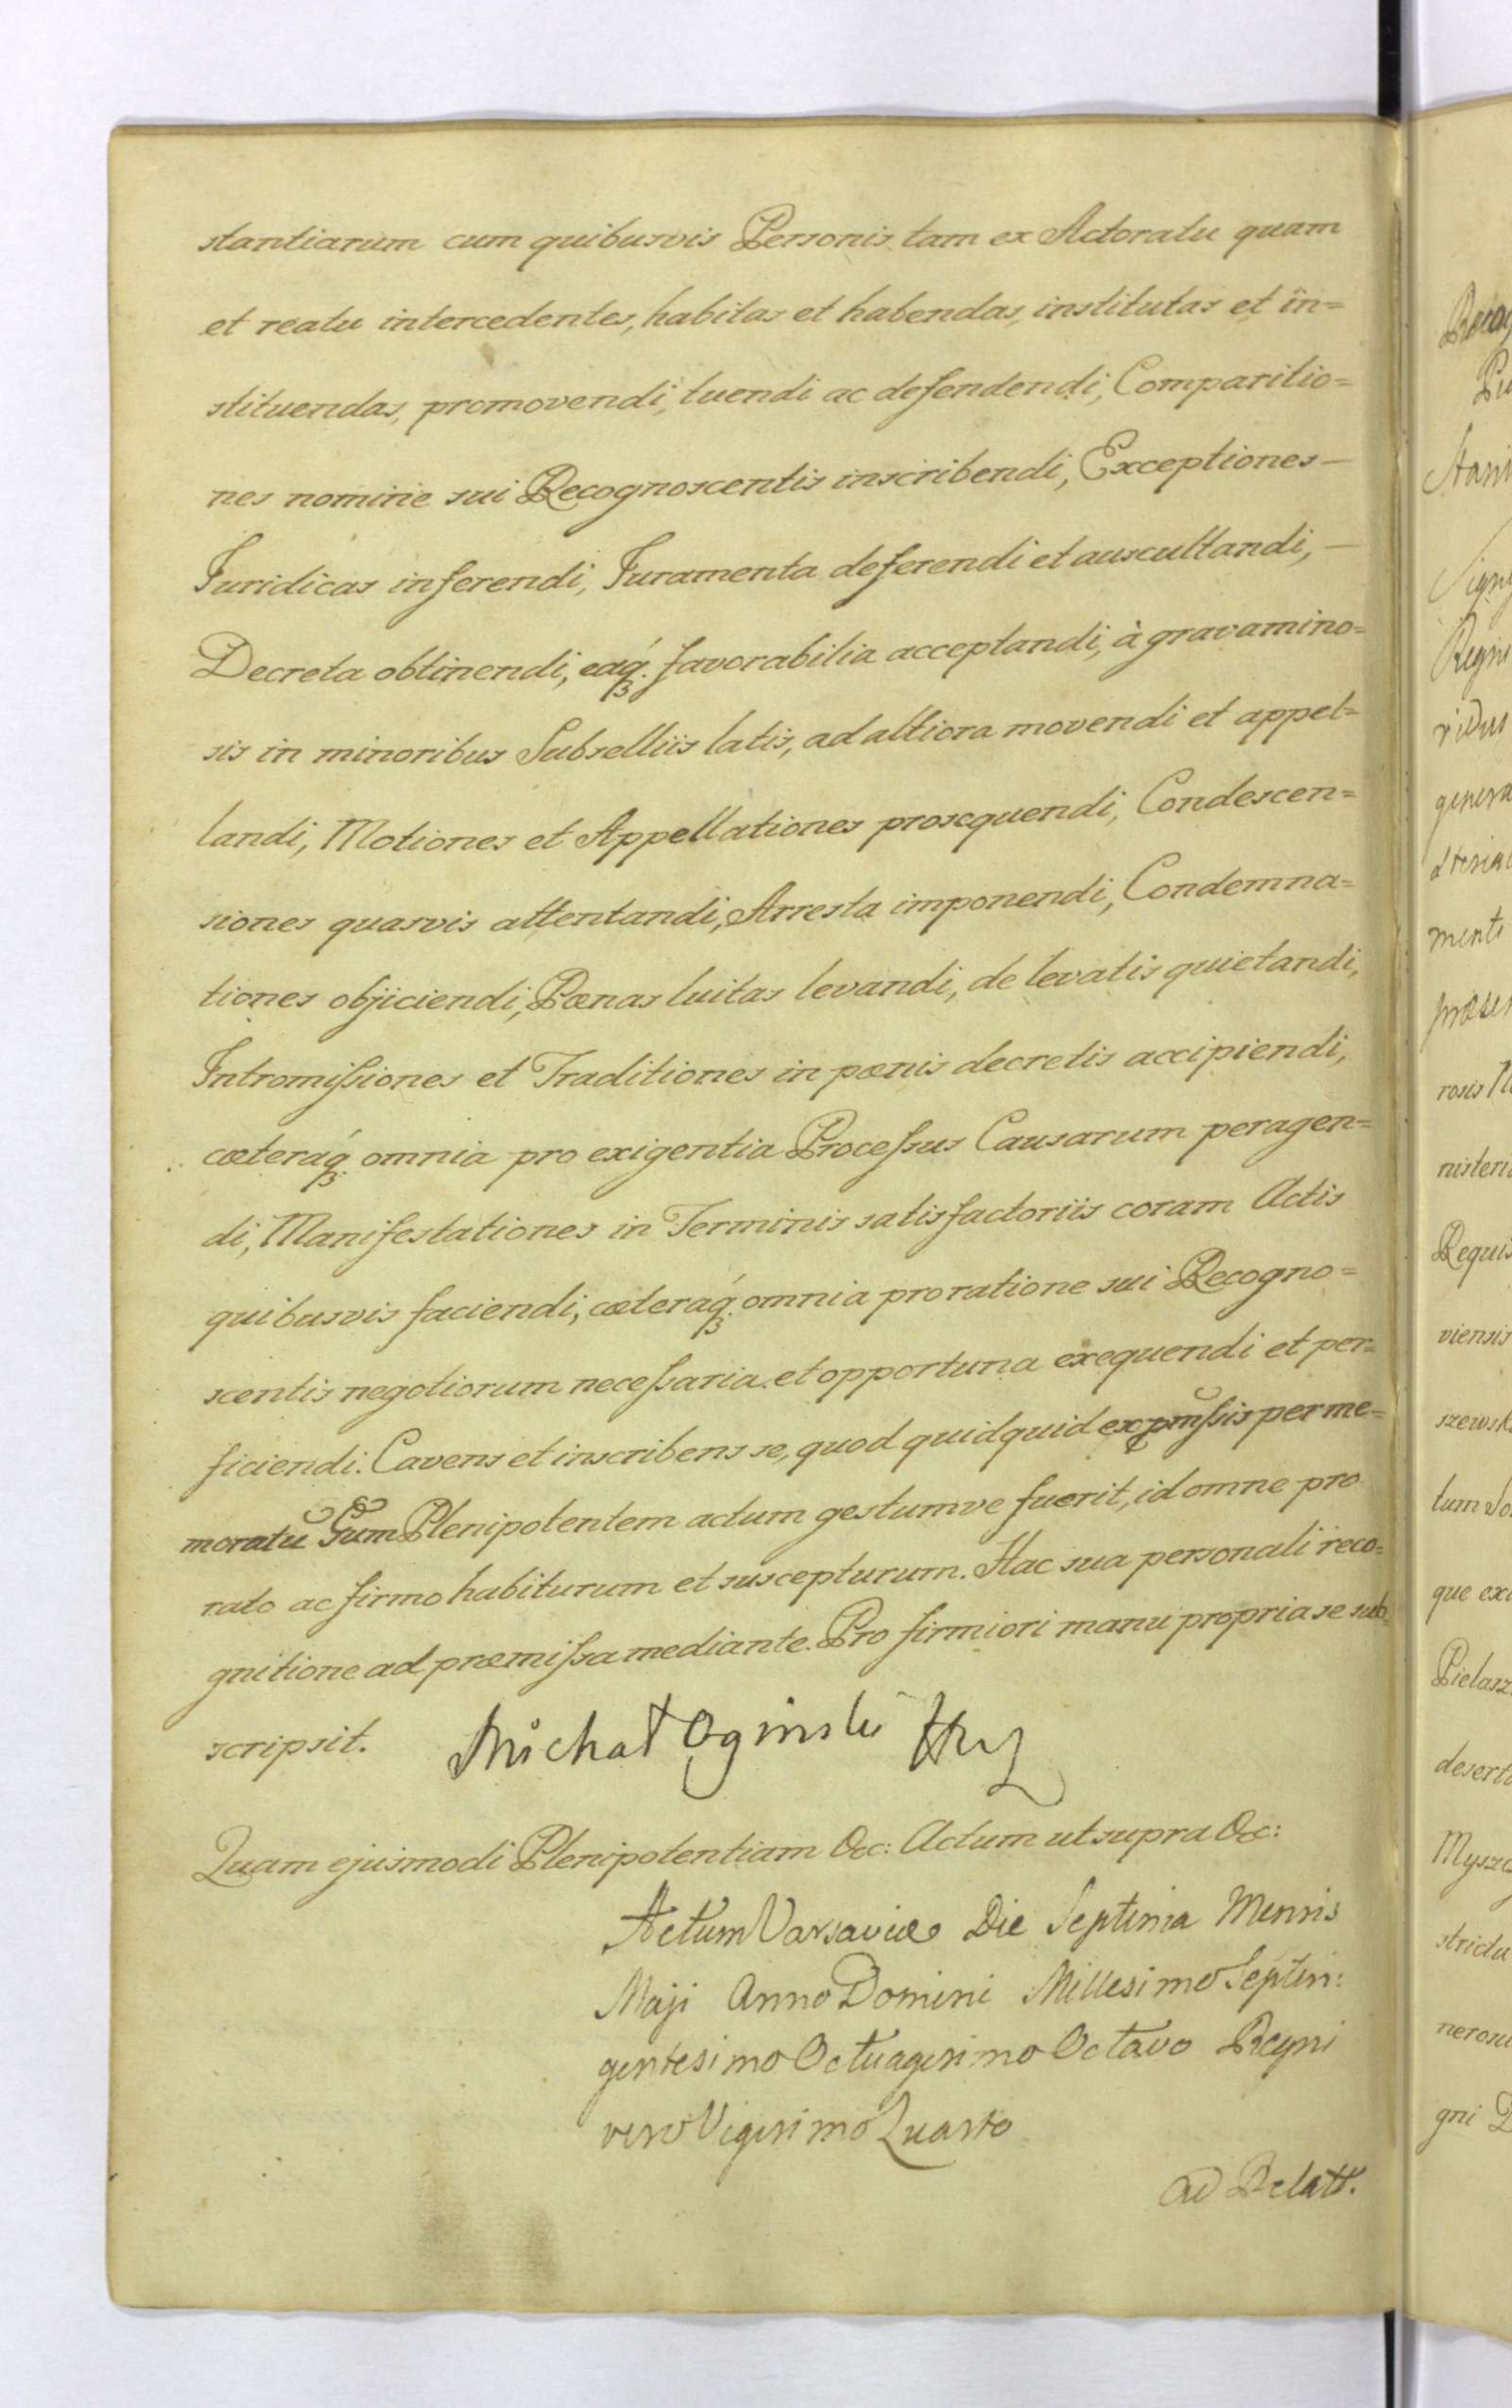 stantiarum cum quibusvis Personis tam ex Actoratu quam
et reatu intercedentes, habitas et habendas, institutas et in=
stituendas, promovendi, tuendi ac defendendi, Comparitio=
nes nomine sui Recognoscentis inscribendi, Exceptiones —
Juridicas inferendi, Juramenta deferendi et auscultandi, —
Decreta obtinendi, eaq́. favorabilia acceptandi, à gravamino=
sis in minoribus Subselliis latis, ad altiora movendi et appel=
landi, Motiones et Appellationes prosequendi, Condescen=
siones quasvis attentandi, Arresta imponendi, Condemna=
tiones objiciendi, Pœnas luitas levandi, de levatis quietandi,
Intromiſsiones et Traditiones in pœnis decretis accipiendi,
cœteraq́ omnia pro exigentia Proceſsus Causarum peragen=
di, Manifestationes in Terminis satisfactoriis coram Actis
quibusvis faciendi, cœteraq́ omnia pro ratione sui Recogno=
scentis negotiorum neceſsaria et opportuna exequendi et per=
ficiendi. Cavens et inscribens se, quod quidquid ex pmſsis per me=
moratu Gum Plenipotentem actum gestumve fuerit, id omne pro
rato ac firmo habiturum et suscepturum. Hac sua personali reco=
gnitione ad prœmiſsa mediante. Pro firmiori manu propria se sub=
scripsit. Michał Oginski
Quam ejusmodi Plenipotentiam &c: Actum ut supra &c:
Actum Varsaviæ Die Septima Mensis
Maji Anno Domini Millesimo Septin:
gentesimo Octuagesimo Octavo Regni
vero Vigesimo Quarto
Ad Relatt.